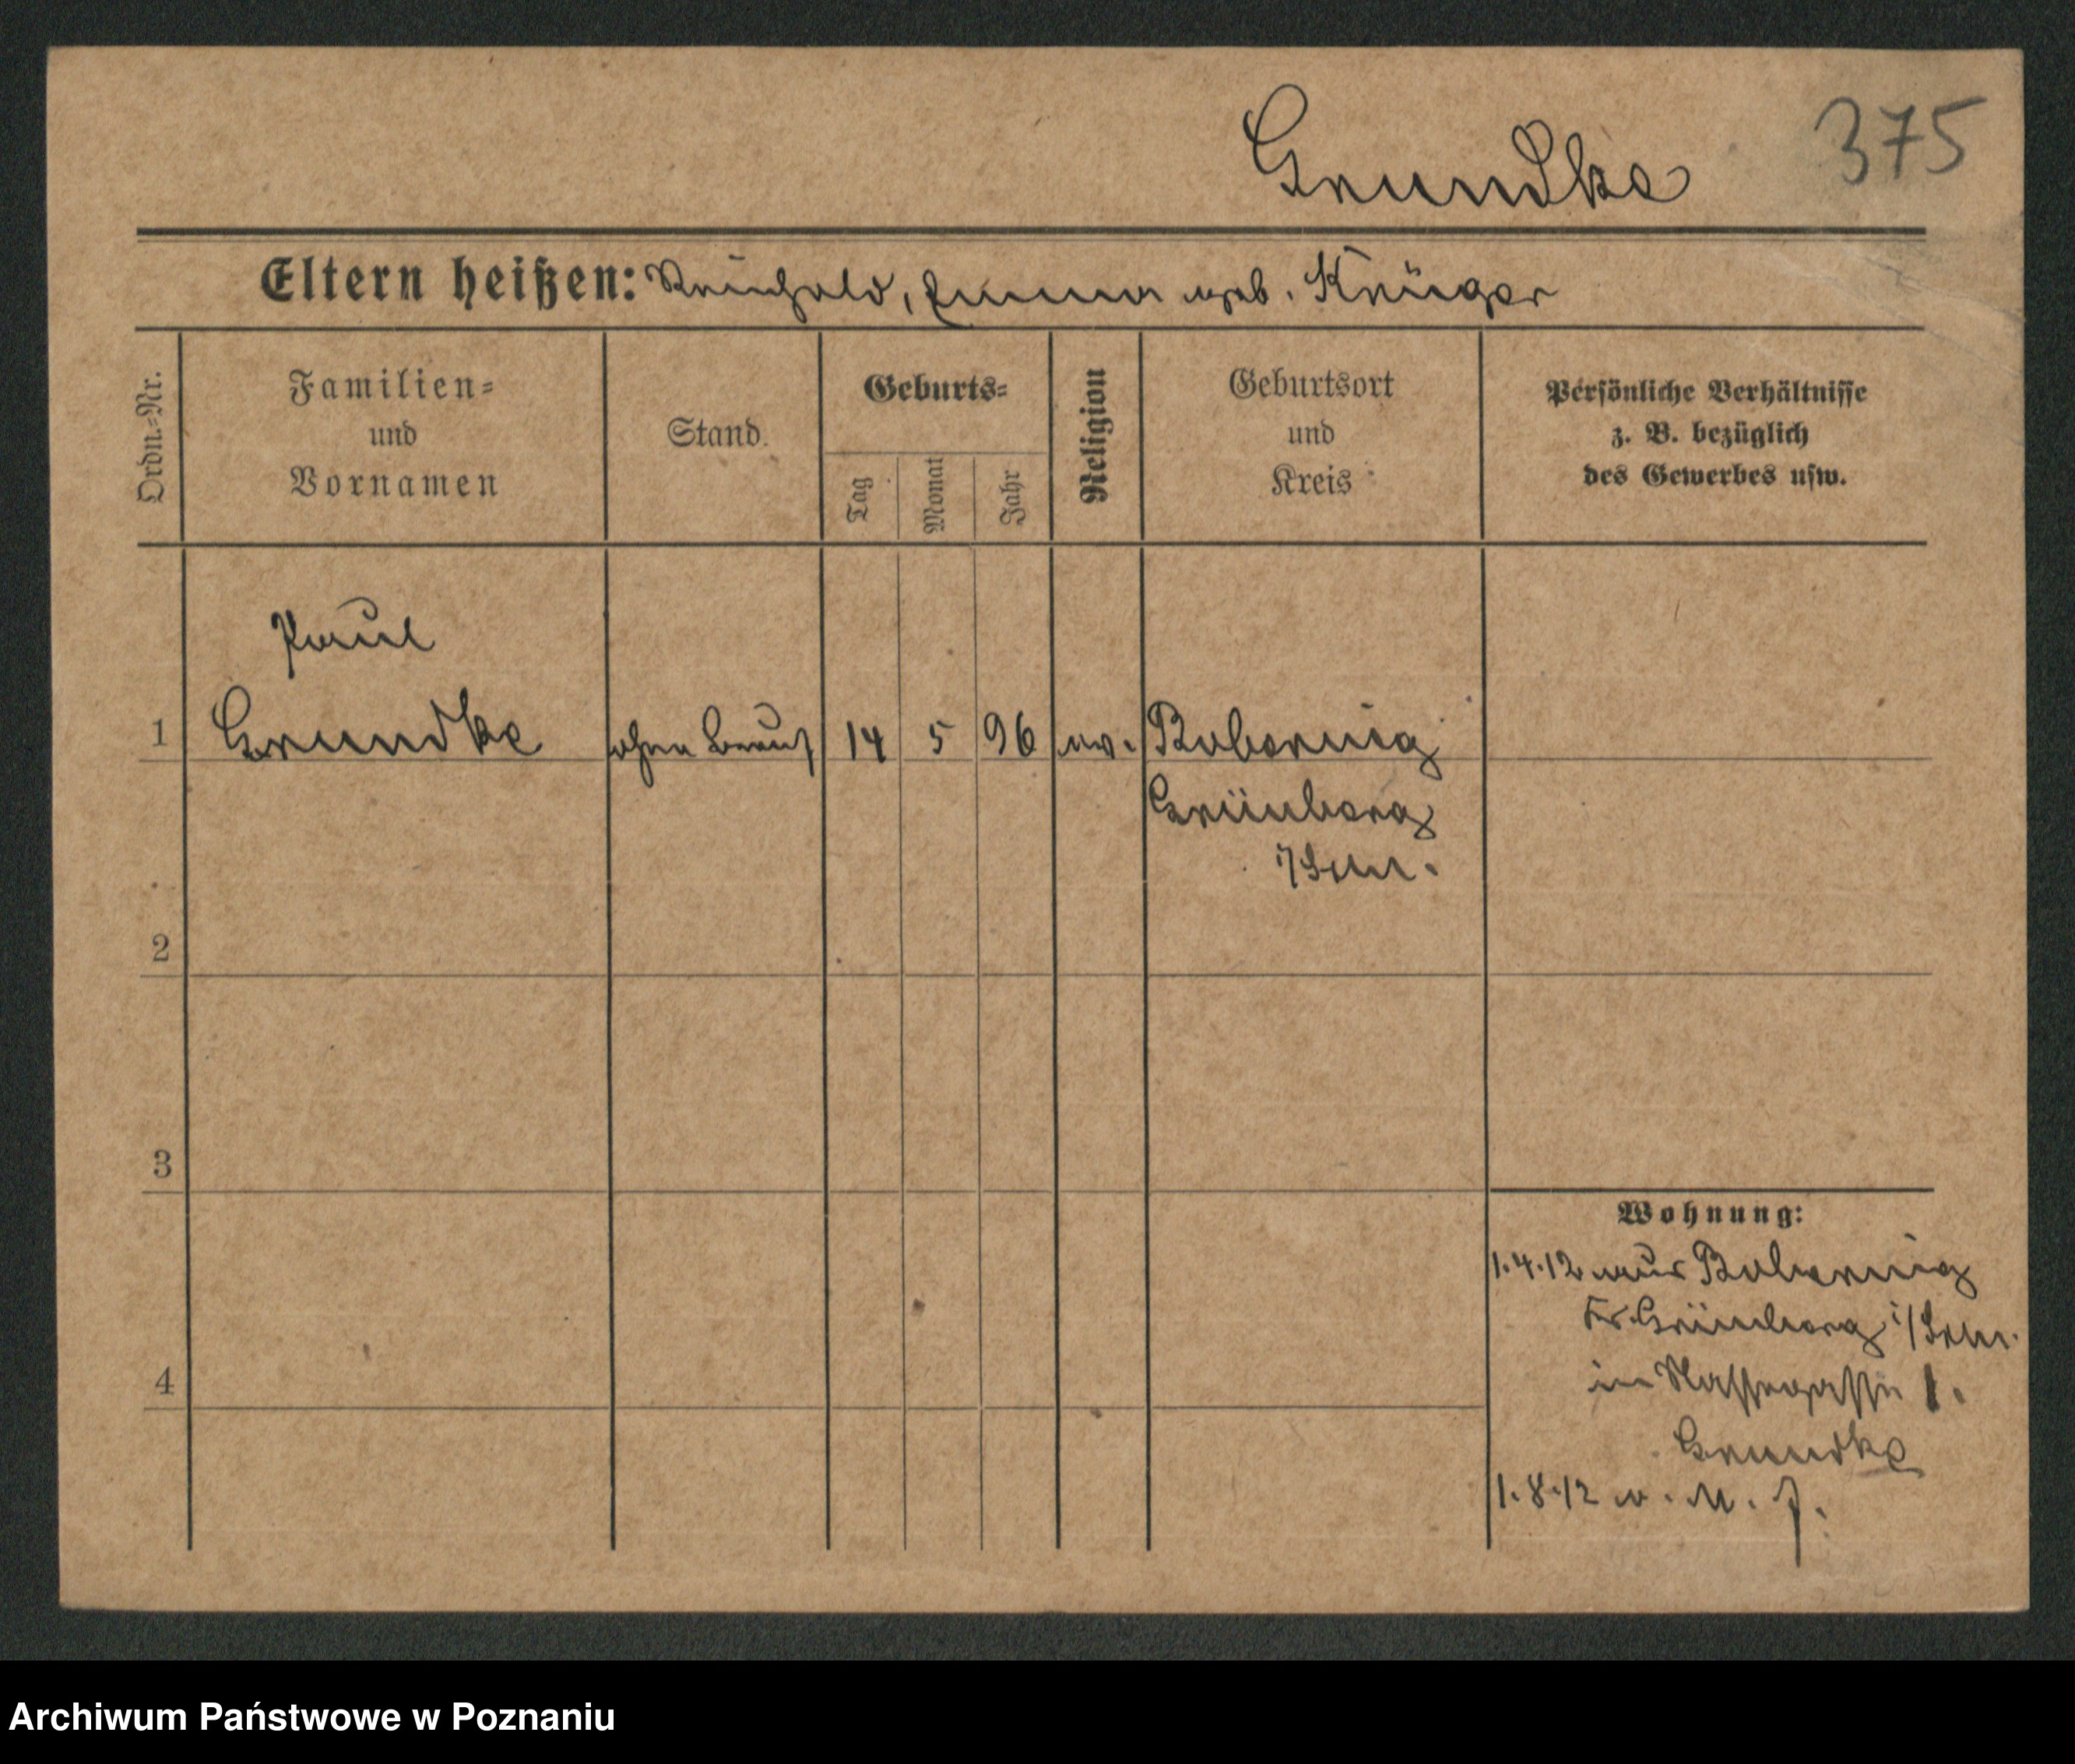 Grundke
375
Eltern heißen: Reinhold, Emma geb. Krüger
Ordn.-Nr.
Familien-
und
Vornamen
Stand.
Geburts-
Tag
Monat
Jahr
Religion
Geburtsort
und
Kreis
Persönliche Verhältnisse
z. B. bezüglich
des Gewerbes usw.
Paul
1 Grundke ohne Beruf 14 5 96 ev. Bobernig
Grünberg
i/Schl.
2
3
4
Wohnung:
1.4.12 aus Bobernig
Kr. Grünberg i/Schl.
in Nassegasse 1.
Grundke
1.8.12 v. M. J.
Archiwum Państwowe w Poznaniu